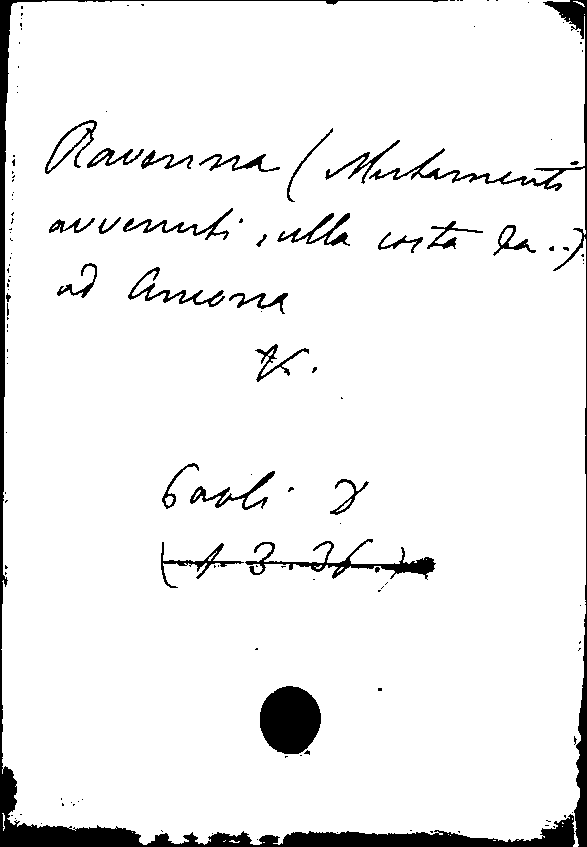 Ravenna (Mutamenti
avvenuti sulla costa da..)
ad Ancona
V.
Paoli D
(1.3.36.)